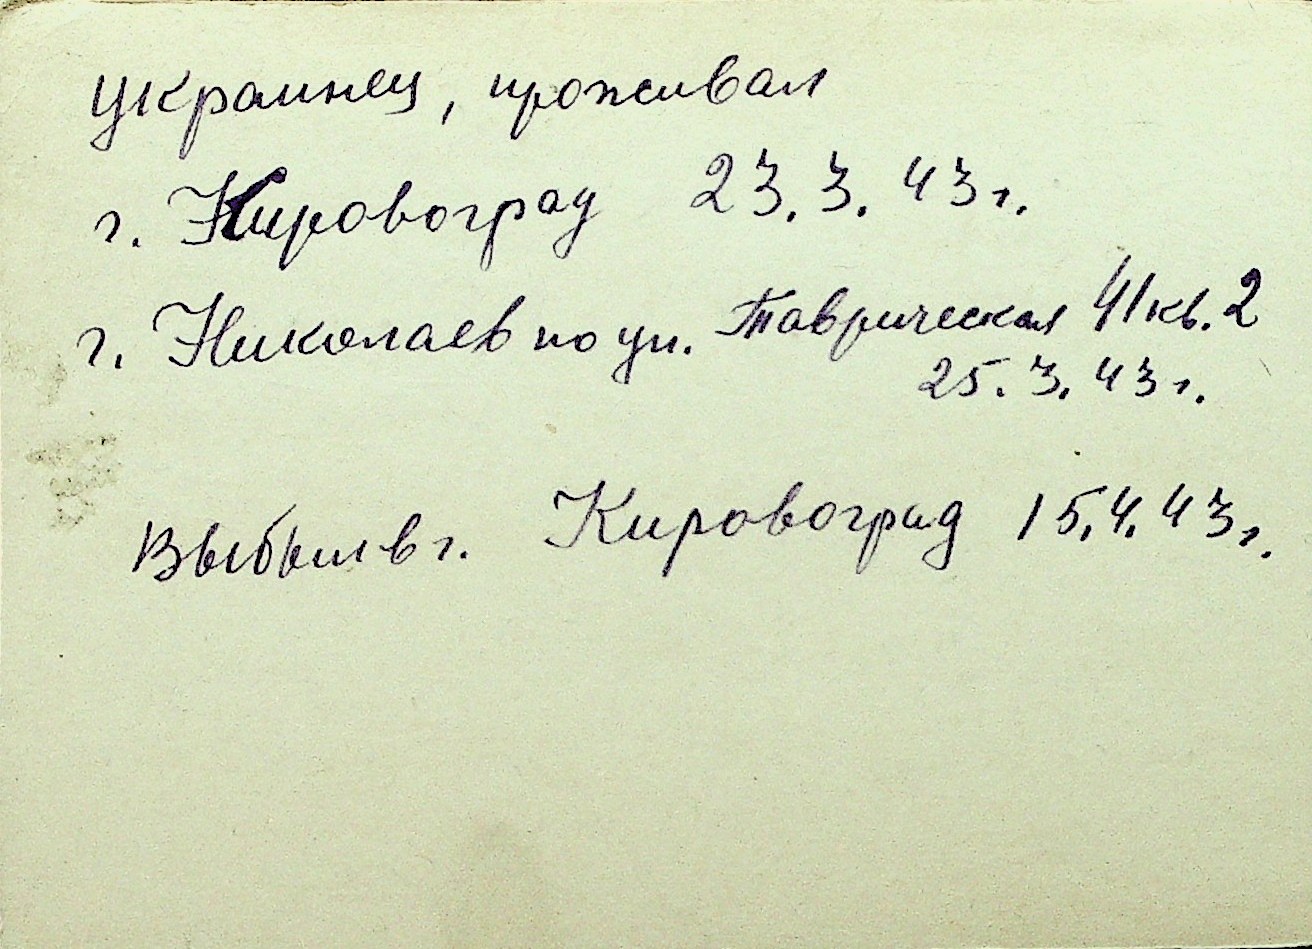 украинец, проживал
г. Кировоград 23.3.43г.
г. Николаев по ул. Таврическая 41 кв. 2
25.3.43г.
Выбыл в г. Кировоград 15.4.43г.